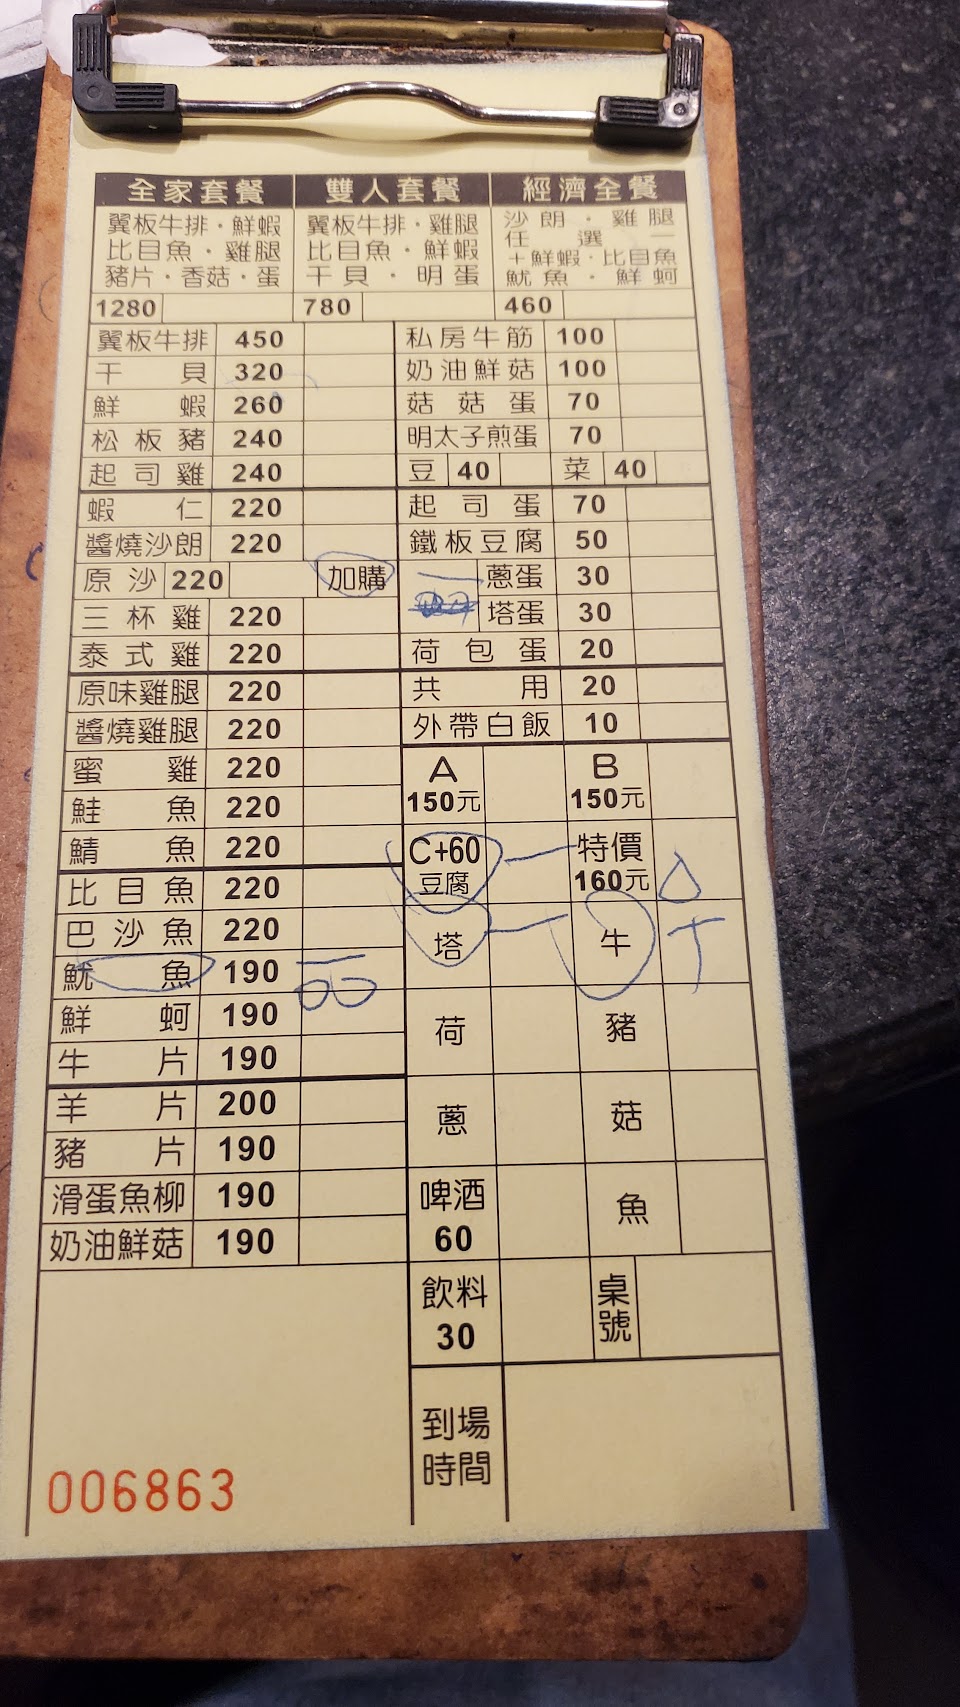 全家套餐 雙人套餐 經濟全餐
翼板牛排·鮮蝦 翼板牛排·雞腿 沙朗·雞腿
比目魚·雞腿 比目魚·鮮蝦 任選一
豬片·香菇·蛋 干貝·明蛋 +鮮蝦·比目魚
魷魚·鮮蚵
1280 780 460
翼板牛排 450 私房牛筋 100
干貝 320 奶油鮮菇 100
鮮蝦 260 菇菇蛋 70
松板豬 240 明太子煎蛋 70
起司雞 240 豆 40 菜 40
蝦仁 220 起司蛋 70
醬燒沙朗 220 鐵板豆腐 50
原沙 220 加購 蔥蛋 30
三杯雞 220 塔蛋 30
泰式雞 220 荷包蛋 20
原味雞腿 220 共用 20
醬燒雞腿 220 外帶白飯 10
蜜雞 220 A 150元 B 150元
鮭魚 220
鯖魚 220 C+60 豆腐 特價 160元
比目魚 220
巴沙魚 220 塔 牛
魷魚 190
鮮蚵 190 荷 豬
牛片 190
羊片 200 蔥 菇
豬片 190
滑蛋魚柳 190 啤酒 60 魚
奶油鮮菇 190
飲料 30 桌號
到場時間
006863